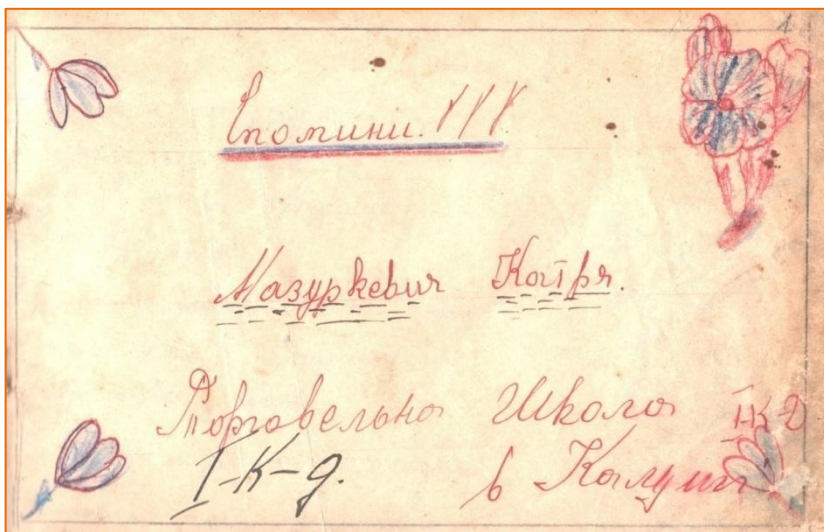 1
Спомини. !!!
Мазуркевич Катря.
Торговельна Школа I-К-д
I-К-д. в Калуши